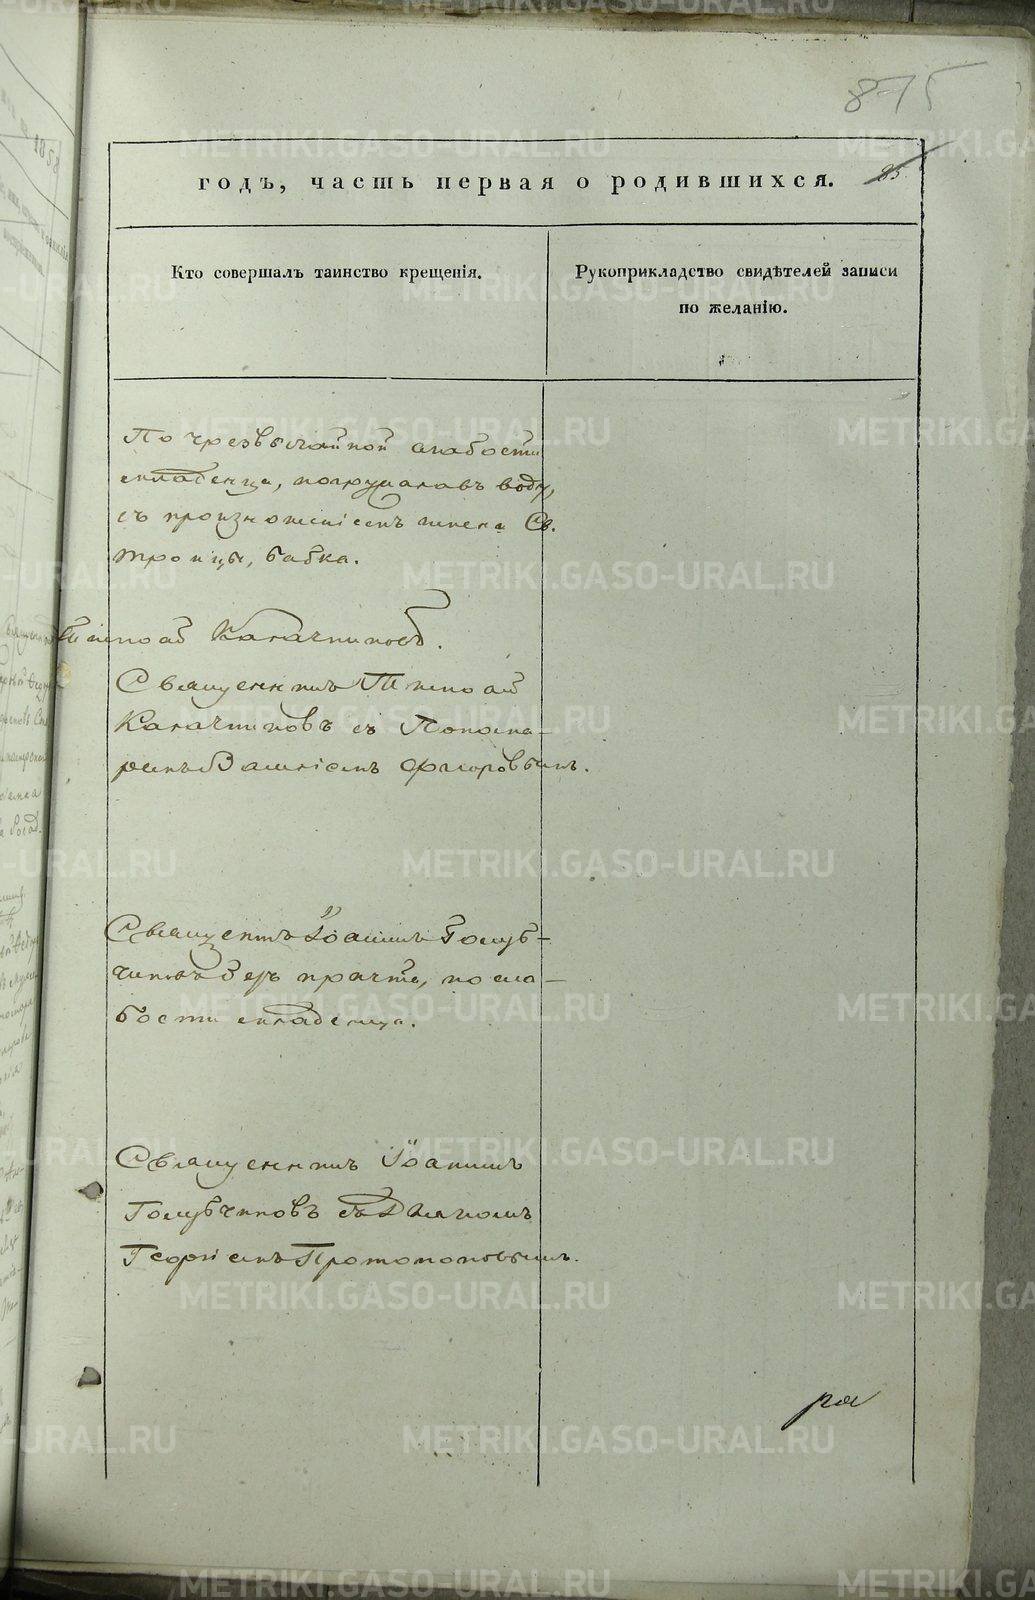 875
годъ, часть первая о родившихся.
85
Кто совершалъ таинство крещенія.
Рукоприкладство свидѣтелей записи
по желанію.
По чрезвычайной слабости
младенца, погружалавъ воду,
съ произношеніемъ имени Св.
Троицы, бабка.
Тимоѳей Калачниковъ.
Священникъ Тимоѳей
Калачниковъ съ Понома-
ремъ
Священникъ Іоаннъ Голуб-
чиковъ безъ причта, по сла-
бости младенца.
Священникъ Іоаннъ
Голубчиковъ съ Діакономъ
Георгіемъ Протопоповымъ.
METRIKI.GASO-URAL.RU